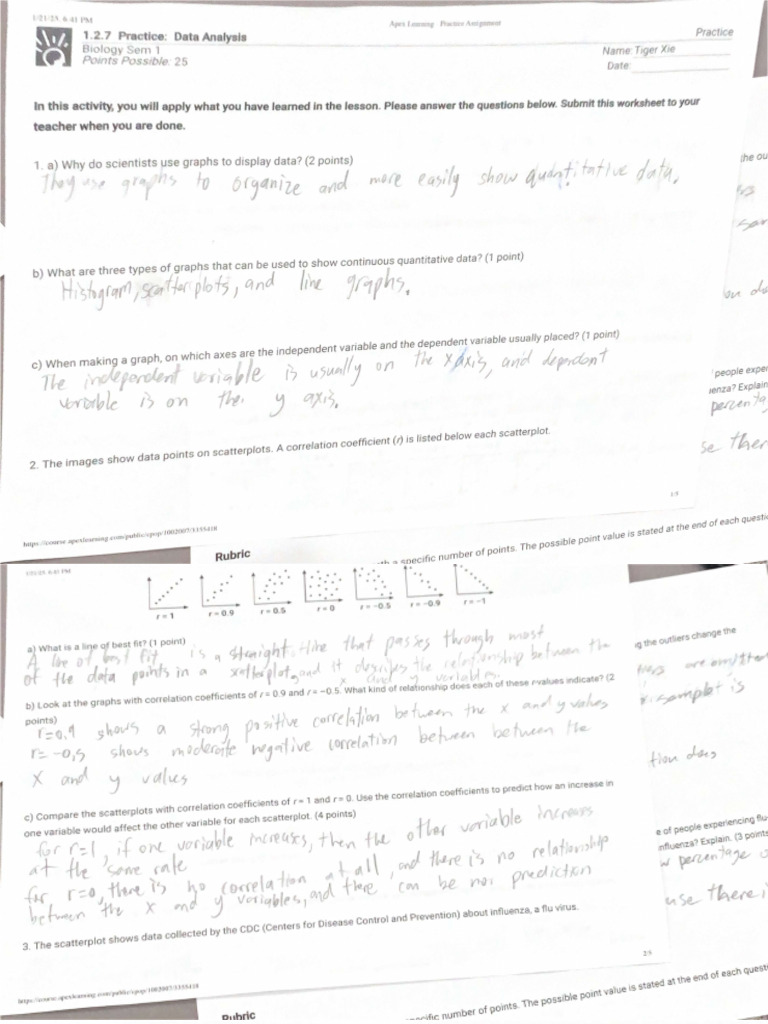 1/21/25, 6:41 PM
Apex Learning - Practice Assignment
1.2.7 Practice: Data Analysis
Practice
Biology Sem 1
Points Possible: 25
Name: Tiger Xie
Date:
In this activity, you will apply what you have learned in the lesson. Please answer the questions below. Submit this worksheet to your
teacher when you are done.
1. a) Why do scientists use graphs to display data? (2 points)
They use graphs to organize and more easily show quantitative data.
b) What are three types of graphs that can be used to show continuous quantitative data? (1 point)
Histogram, scatterplots, and line graphs.
c) When making a graph, on which axes are the independent variable and the dependent variable usually placed? (1 point)
The independent variable is usually on the x axis, and dependent
variable is on the y axis.
2. The images show data points on scatterplots. A correlation coefficient (r) is listed below each scatterplot.
1/5
https://course.apexlearning.com/public/cpop/1002007/3355418
the ou
people exper
ienza? Explain
percenta
se ther
Rubric
specific number of points. The possible point value is stated at the end of each questi
1/21/25, 6:41 PM
r = 1
r = 0.9
r = 0.5
r = 0
r = -0.5
r = -0.9
r = -1
a) What is a line of best fit? (1 point)
A line of best fit is a straight line that passes through most
of the data points in a scatterplot, and it describes the relationship between the
x and y variables.
b) Look at the graphs with correlation coefficients of r = 0.9 and r = -0.5. What kind of relationship does each of these r-values indicate? (2
points)
r=0.9 shows a strong positive correlation between the x and y values
r= -0.5 shows moderate negative correlation between between the
x and y values
c) Compare the scatterplots with correlation coefficients of r = 1 and r = 0. Use the correlation coefficients to predict how an increase in
one variable would affect the other variable for each scatterplot. (4 points)
for r=1, if one variable increases, then the other variable increases
at the same rate
for, r=0, there is no correlation at all, and there is no relationship
between the x and y variables, and there can be no prediction
3. The scatterplot shows data collected by the CDC (Centers for Disease Control and Prevention) about influenza, a flu virus.
2/5
https://course.apexlearning.com/public/cpop/1002007/3355418
ng the outliers change the
are omitted
is
tion does
e of people experiencing flu-
nfluenza? Explain. (3 points
percentage o
use there i
Rubric
ecific number of points. The possible point value is stated at the end of each questi